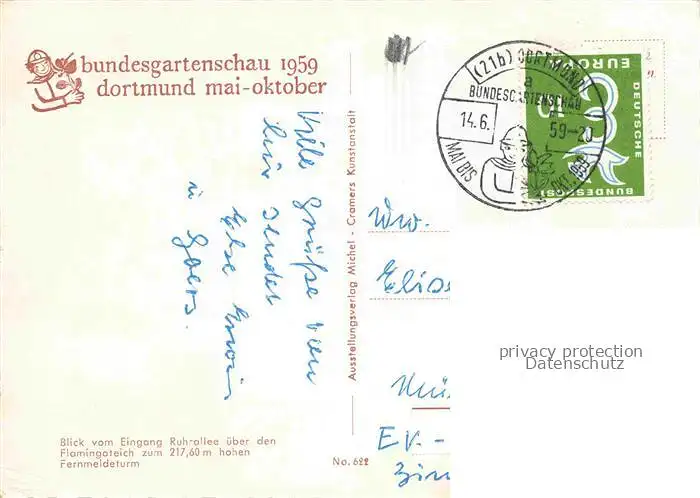 bundesgartenschau 1959
dortmund mai-oktober
Viele Grüße von
hier sendet
Else Erwin
u Goers.
Blick vom Eingang Ruhrallee über den
Flamingoteich zum 217,60 m hohen
Fernmeldeturm
No. 622
Ausstellungsverlag Michel - Cramers Kunstanstalt
(21b) DORTMUND
a
BUNDESGARTENSCHAU
14.6.
59-20
MAI BIS
DEUTSCHE
BUNDESPOST
EUROPA
10
Ww.
Elis
Mün
Ev.-
Zin
privacy protection
Datenschutz